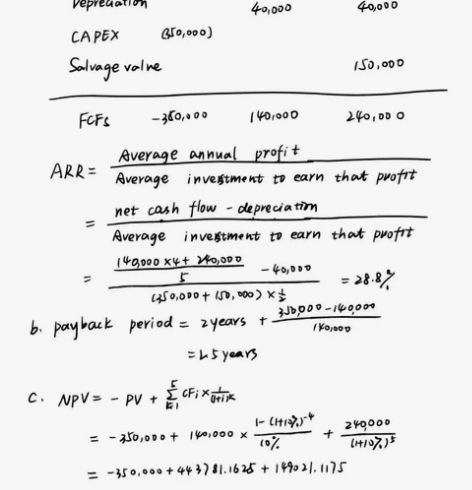 Depreciation 40,000 40,000
CAPEX (350,000)
Salvage value 150,000
FCFs -350,000 140,000 240,000
ARR = Average annual profit / Average investment to earn that profit
= net cash flow - depreciation / Average investment to earn that profit
= (140,000 × 4 + 240,000 / 5 - 40,000) / (350,000 + 150,000) × 1/2 = 28.8%
b. payback period = 2 years + 350,000 - 140,000 / 140,000
= 2.5 years
c. NPV = - PV + 5 Σ k=1 CFi × 1/(1+i)k
= -350,000 + 140,000 × 1-(1+10%)^-4 / 10% + 240,000 / (1+10%)^5
= -350,000 + 443781.1625 + 149021.1175